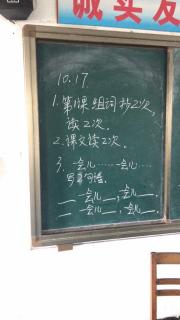 诚实友
10.17.
1.第1课组词抄2次,
读2次.
2.课文读2次.
3.一会儿……一会儿……
写事句语.
__一会儿__,一会儿__.
__一会儿__,一会儿__.